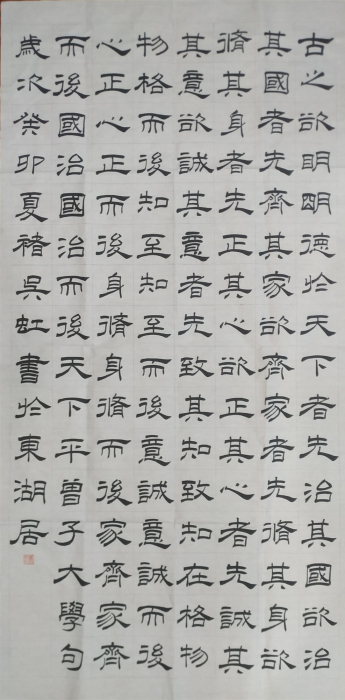 古之欲明朙德扵天下者先治其國欲治
其國者先齊其家欲齊家者先脩其身欲
脩其身者先正其心欲正其心者先誠其
其意欲誠其意者先致其知致知在格物
物格而後知至知至而後意誠意誠而後
心正心正而後身脩身脩而後家齊家齊
而後國治國治而後天下平曾子大學句
歲次癸卯夏褚吳虹書扵東湖居